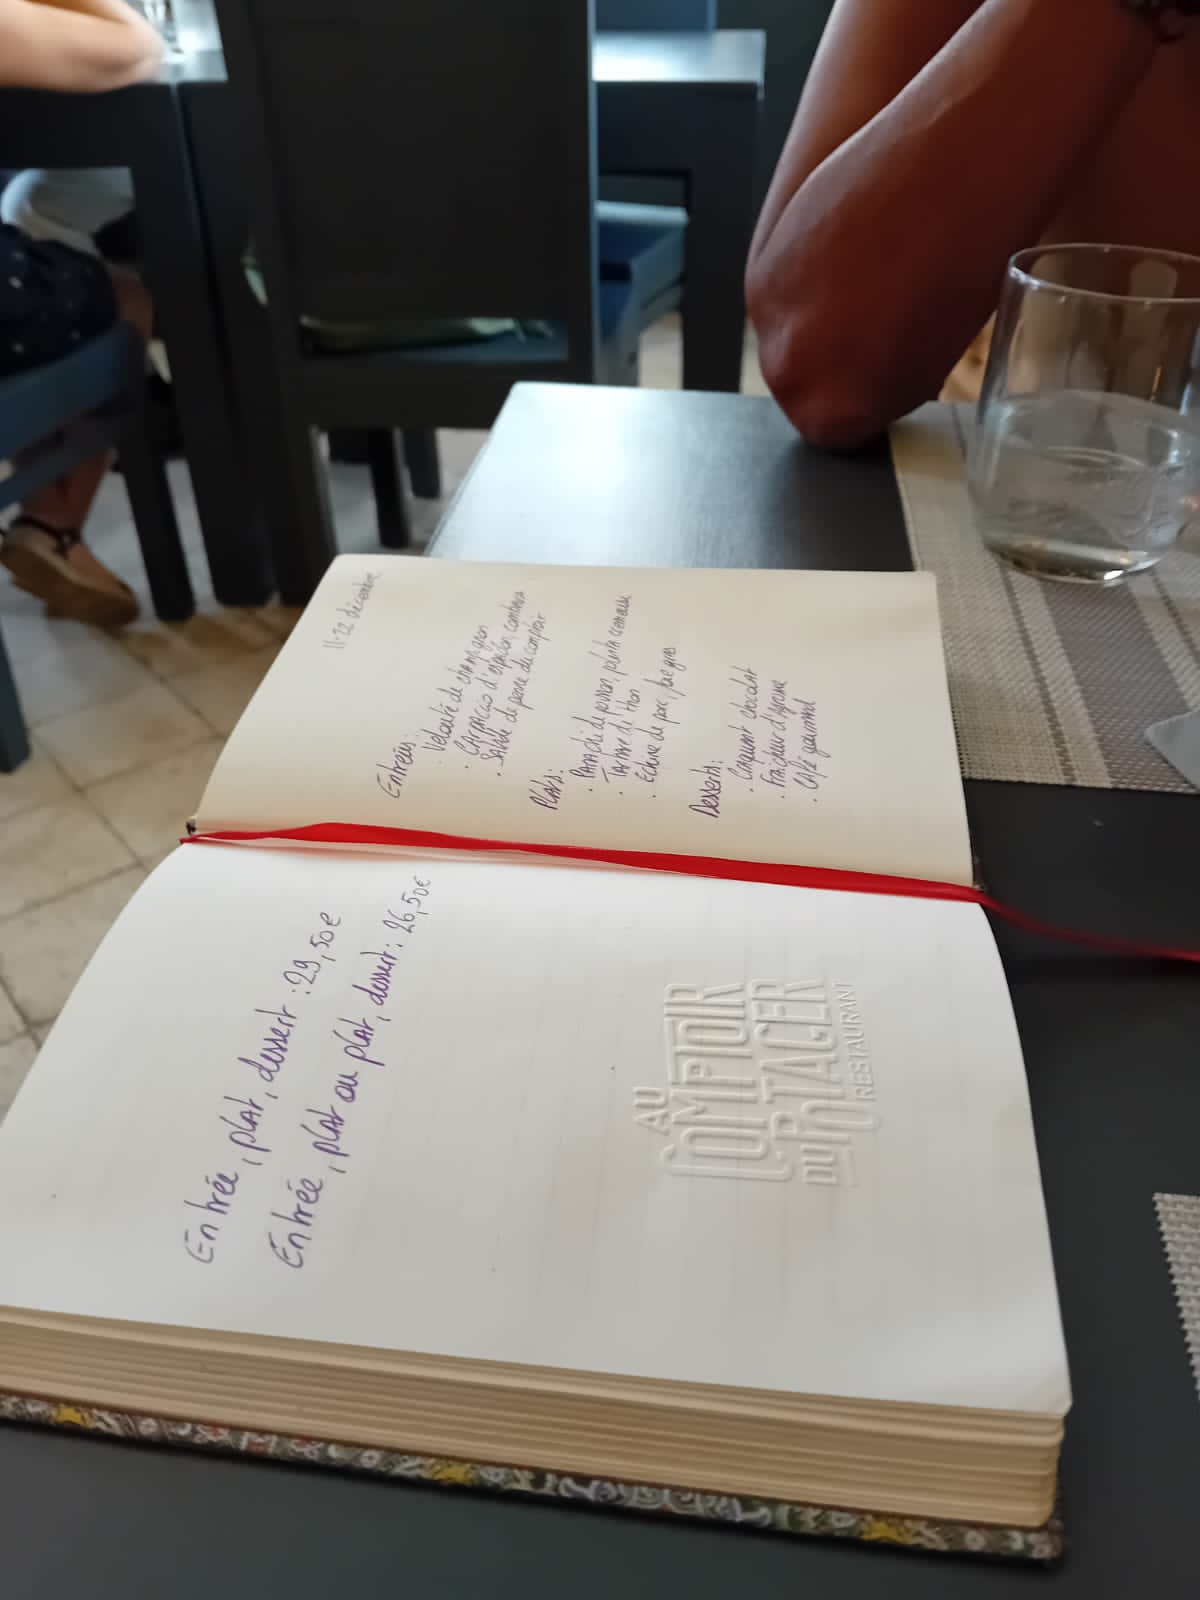 11-22 décembre
Entrées:
· Velouté de champignon
· Carpaccio d'espadon, combava
· Salade de pomme du comptoir
Plats:
· Parmentier de poisson, polenta crémeuse
· Tartare de thon
· Echine de porc, foie gras
Desserts:
· Craquant chocolat
· Fraîcheur d'agrume
· Café gourmand
Entrée, plat, dessert : 29,50€
Entrée, plat ou plat, dessert : 26,50€
AU
COMPTOIR
DU POTAGER
RESTAURANT